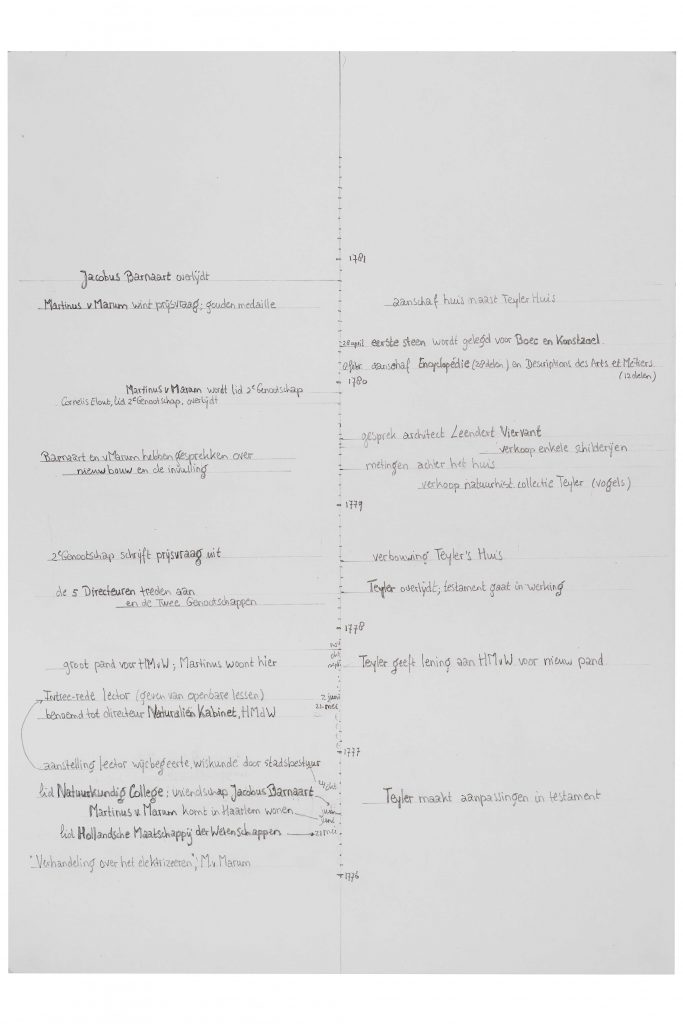 1781
Jacobus Barnaart overlijdt
Martinus v Marum wint prijsvraag; gouden medaille
aanschaf huis naast Teyler Huis
28 april eerste steen wordt gelegd voor Boec en Konstzael
febr. aanschaf Encyclopédie (28 delen) en Descriptions des Arts et Métiers
(12 delen)
1780
Martinus v Marum wordt lid 2e Genootschap
Cornelis Elout, lid 2e Genootschap, overlijdt
gesprek architect Leendert Viervant
verkoop enkele schilderijen
Barnaart en v Marum hebben gesprekken over
nieuwbouw en de invulling
metingen achter het huis
verkoop natuurhist. collectie Teyler (vogels)
1779
2e Genootschap schrijft prijsvraag uit
verbouwing Teyler's Huis
de 5 Directeuren treden aan
en de Twee Genootschappen
Teyler overlijdt; testament gaat in werking
1778
nov
okt
sept
groot pand voor HMvW; Martinus woont hier
Teyler geeft lening aan HMvW voor nieuw pand
Intree-rede lector (geven van openbare lessen)
2 juni
benoemd tot directeur Naturaliën Kabinet, HMdW
21 mei
1777
aanstelling lector wijsbegeerte, wiskunde door stadsbestuur
24 okt
lid Natuurkundig College; vriendschap Jacobus Barnaart
Teyler maakt aanpassingen in testament
Martinus v Marum komt in Haarlem wonen
juni
lid Hollandsche Maatschappij der Wetenschappen
21 mei
"Verhandeling over het elektrizeeren"; M.v Marum
1776